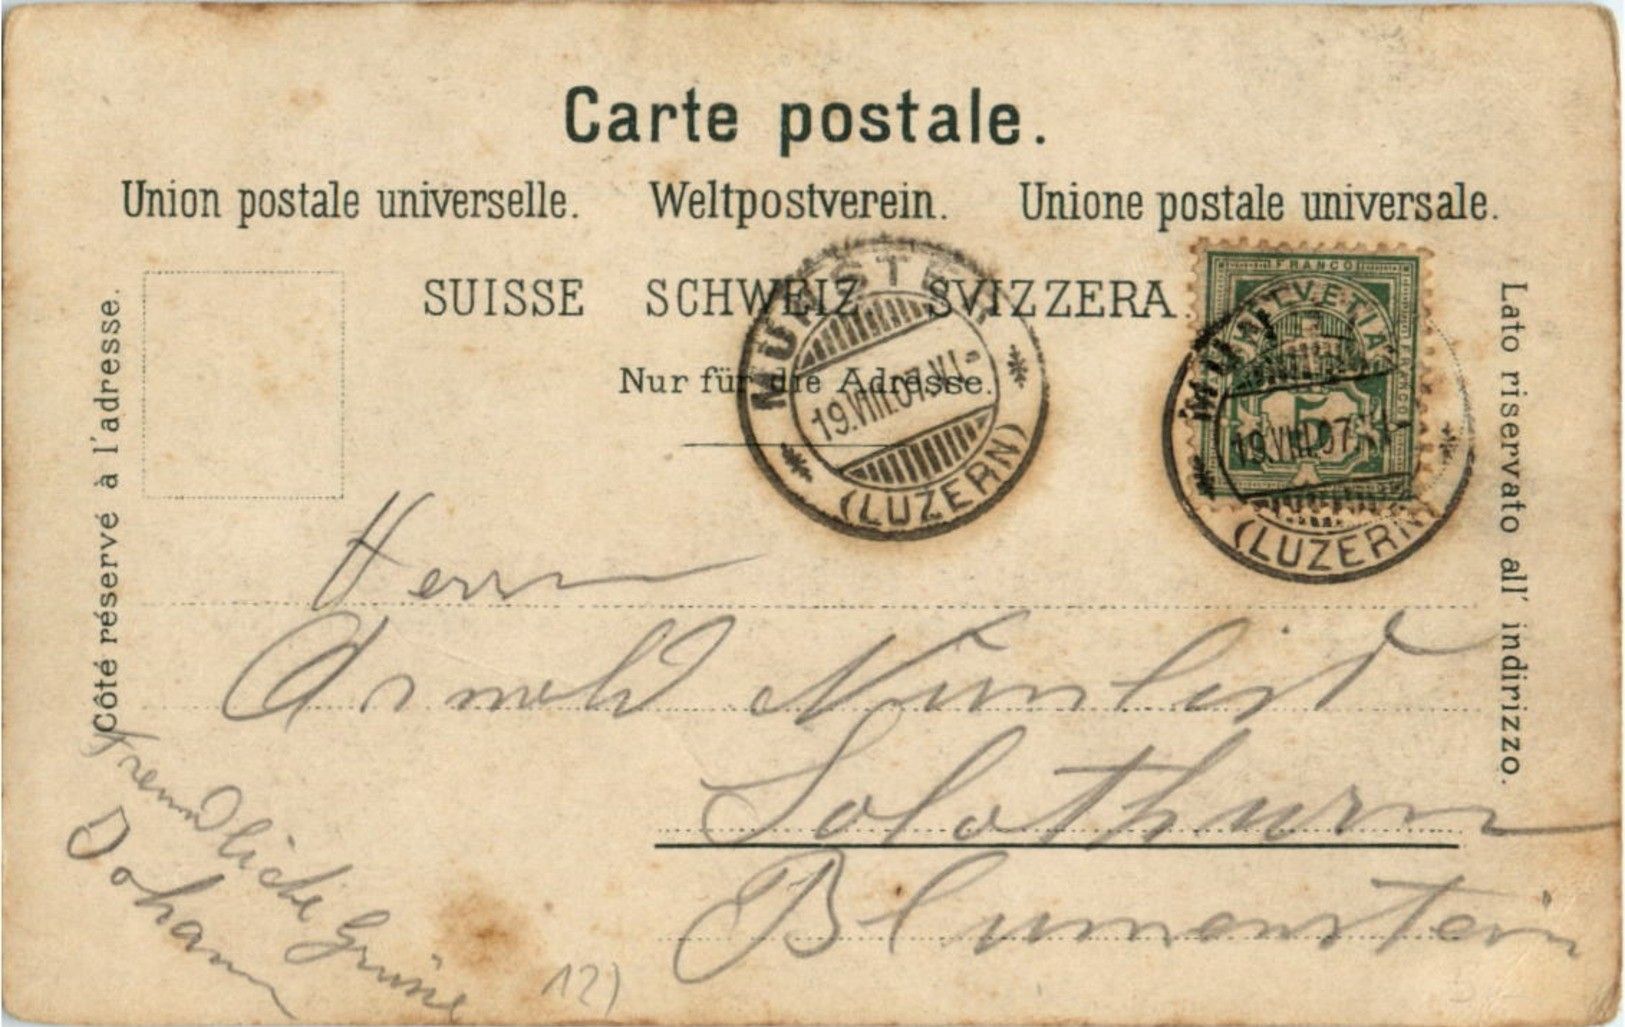 Carte postale.
Union postale universelle. Weltpostverein. Unione postale universale.
SUISSE SCHWEIZ SVIZZERA.
Nur für die Adresse.
Côté réservé à l'adresse.
Lato riservato all' indirizzo.
MÜNSTER
19.VIII.07.VI.
(LUZERN)
FRANCO
HELVETIA
FRANCO
5
MÜN
19.VIII.07.VI
(LUZERN)
Herrn
Arnold
Solothurn
Blumenstein
Freundliche Grüsse
Johann
12)